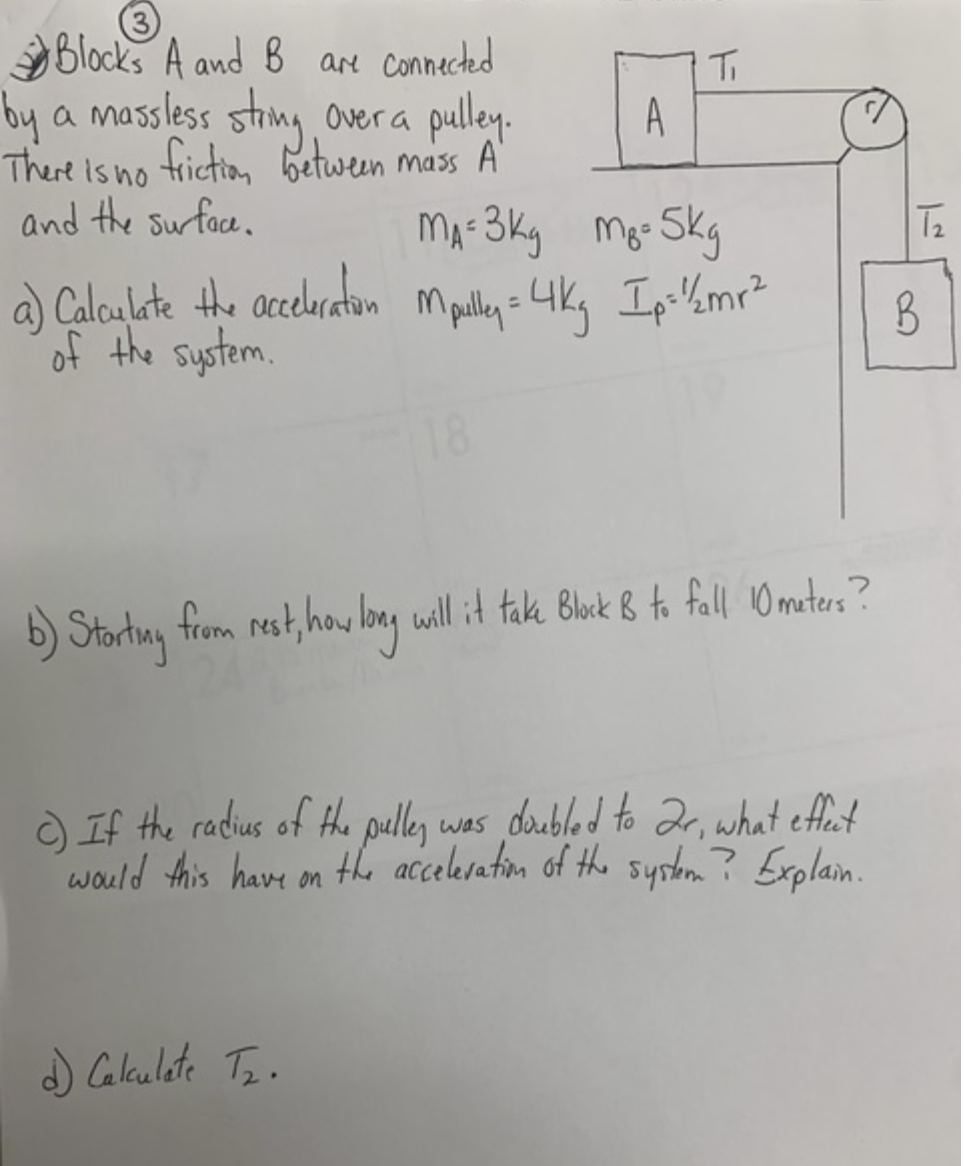 ③
Blocks A and B are connected
by a massless string over a pulley.
There is no friction between mass A
and the surface.
m_A = 3kg m_B = 5kg
a) Calculate the acceleration
of the system.
m_pulley = 4kg I_p = 1/2mr²
T₁
A
r
T₂
B
18
19
17
24
b) Starting from rest, how long will it take Block B to fall 10 meters?
c) If the radius of the pulley was doubled to 2r, what effect
would this have on the acceleration of the system? Explain.
d) Calculate T₂.